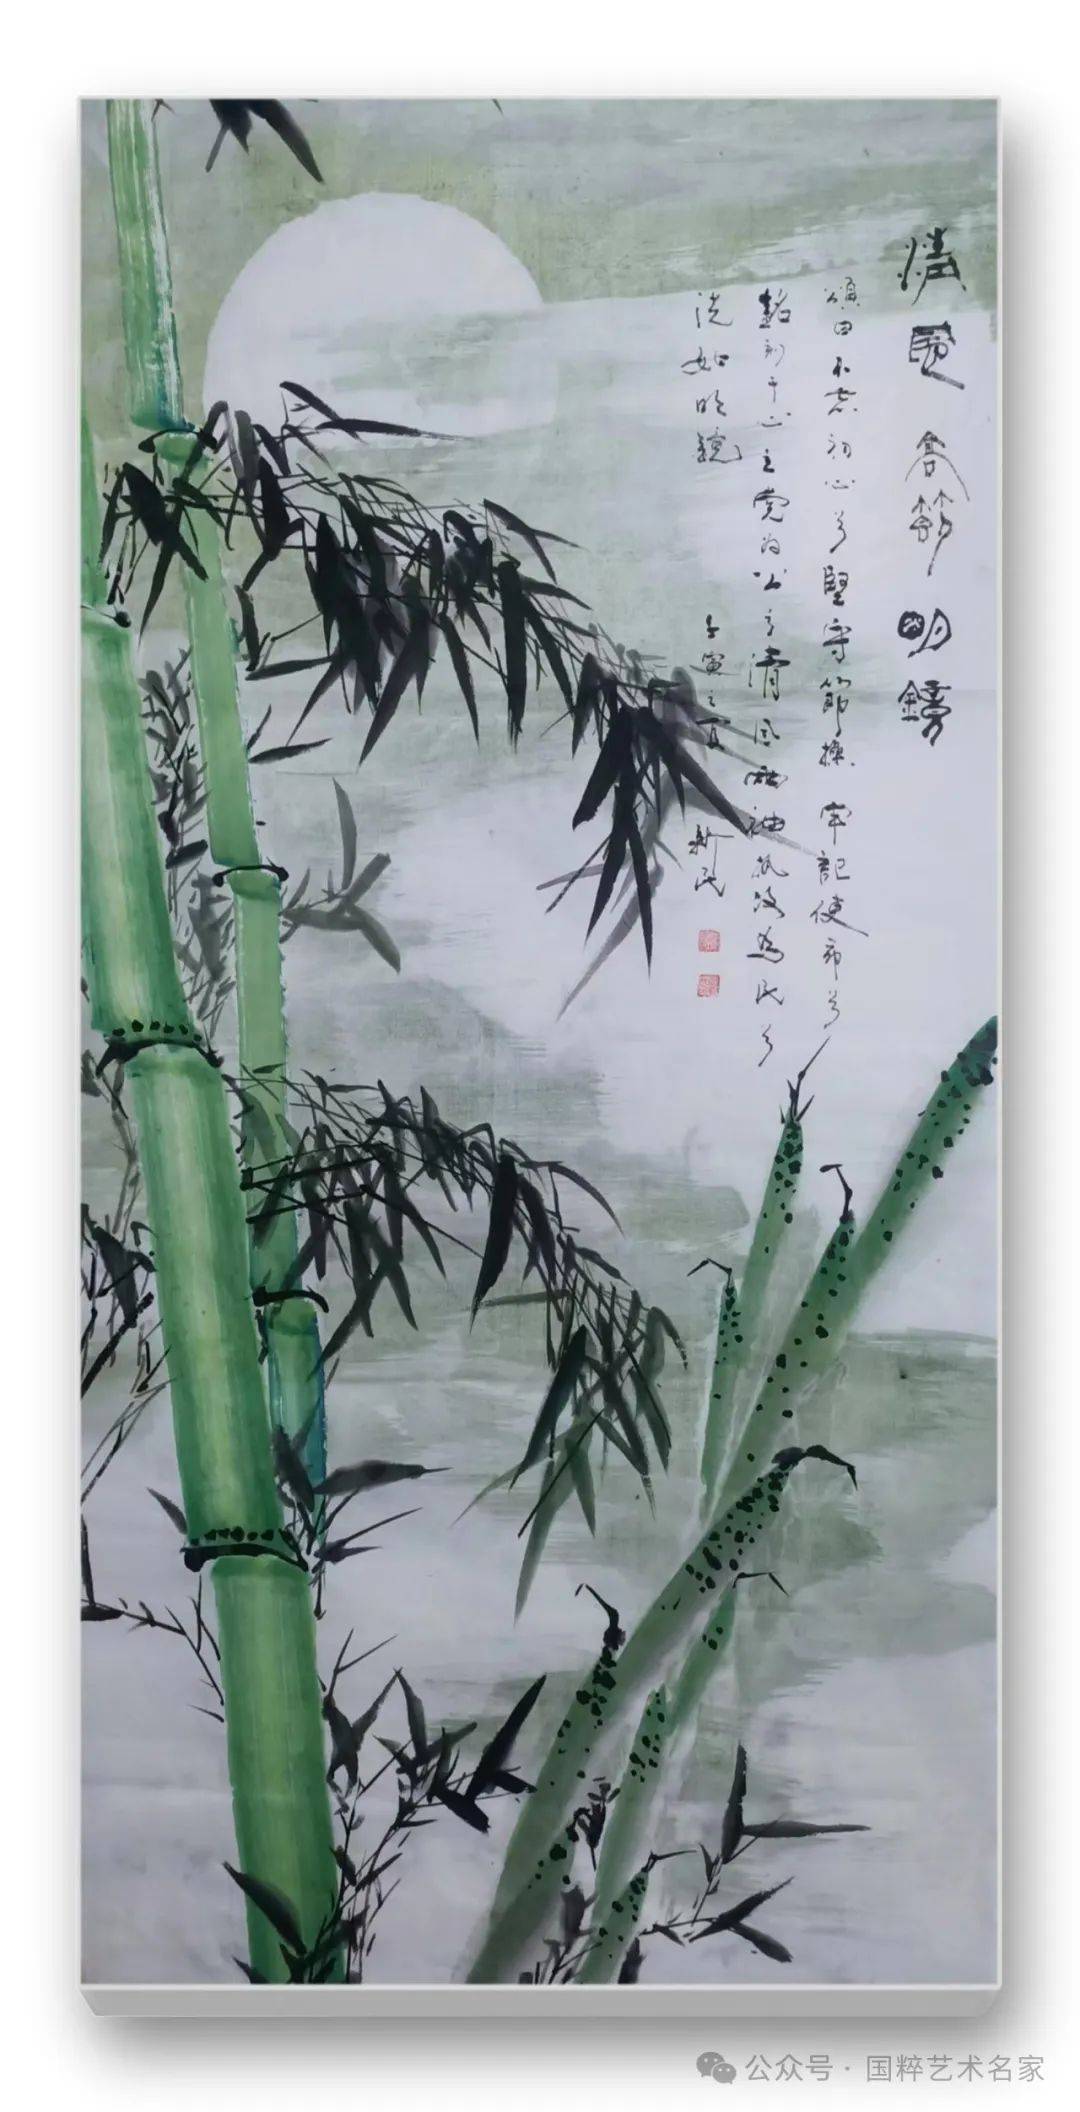 清風高節明鏡
頌曰不忘初心兮堅守節操牢記使命兮
銘刻于心立党为公兮清風兩袖执政為民兮
洗如明鏡
壬寅之夏 新民
公众号 · 国粹艺术名家